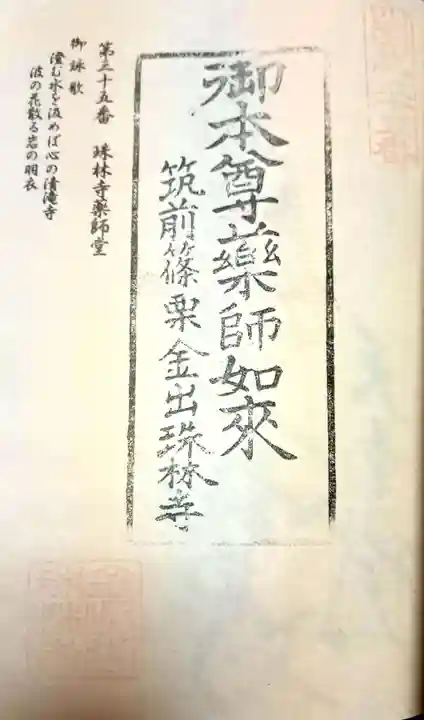 御本尊薬師如來
筑前篠栗金出珠林寺
第三十五番 珠林寺薬師堂
御詠歌
澄む水を汲めば心の清滝寺
波の花散る岩の羽衣